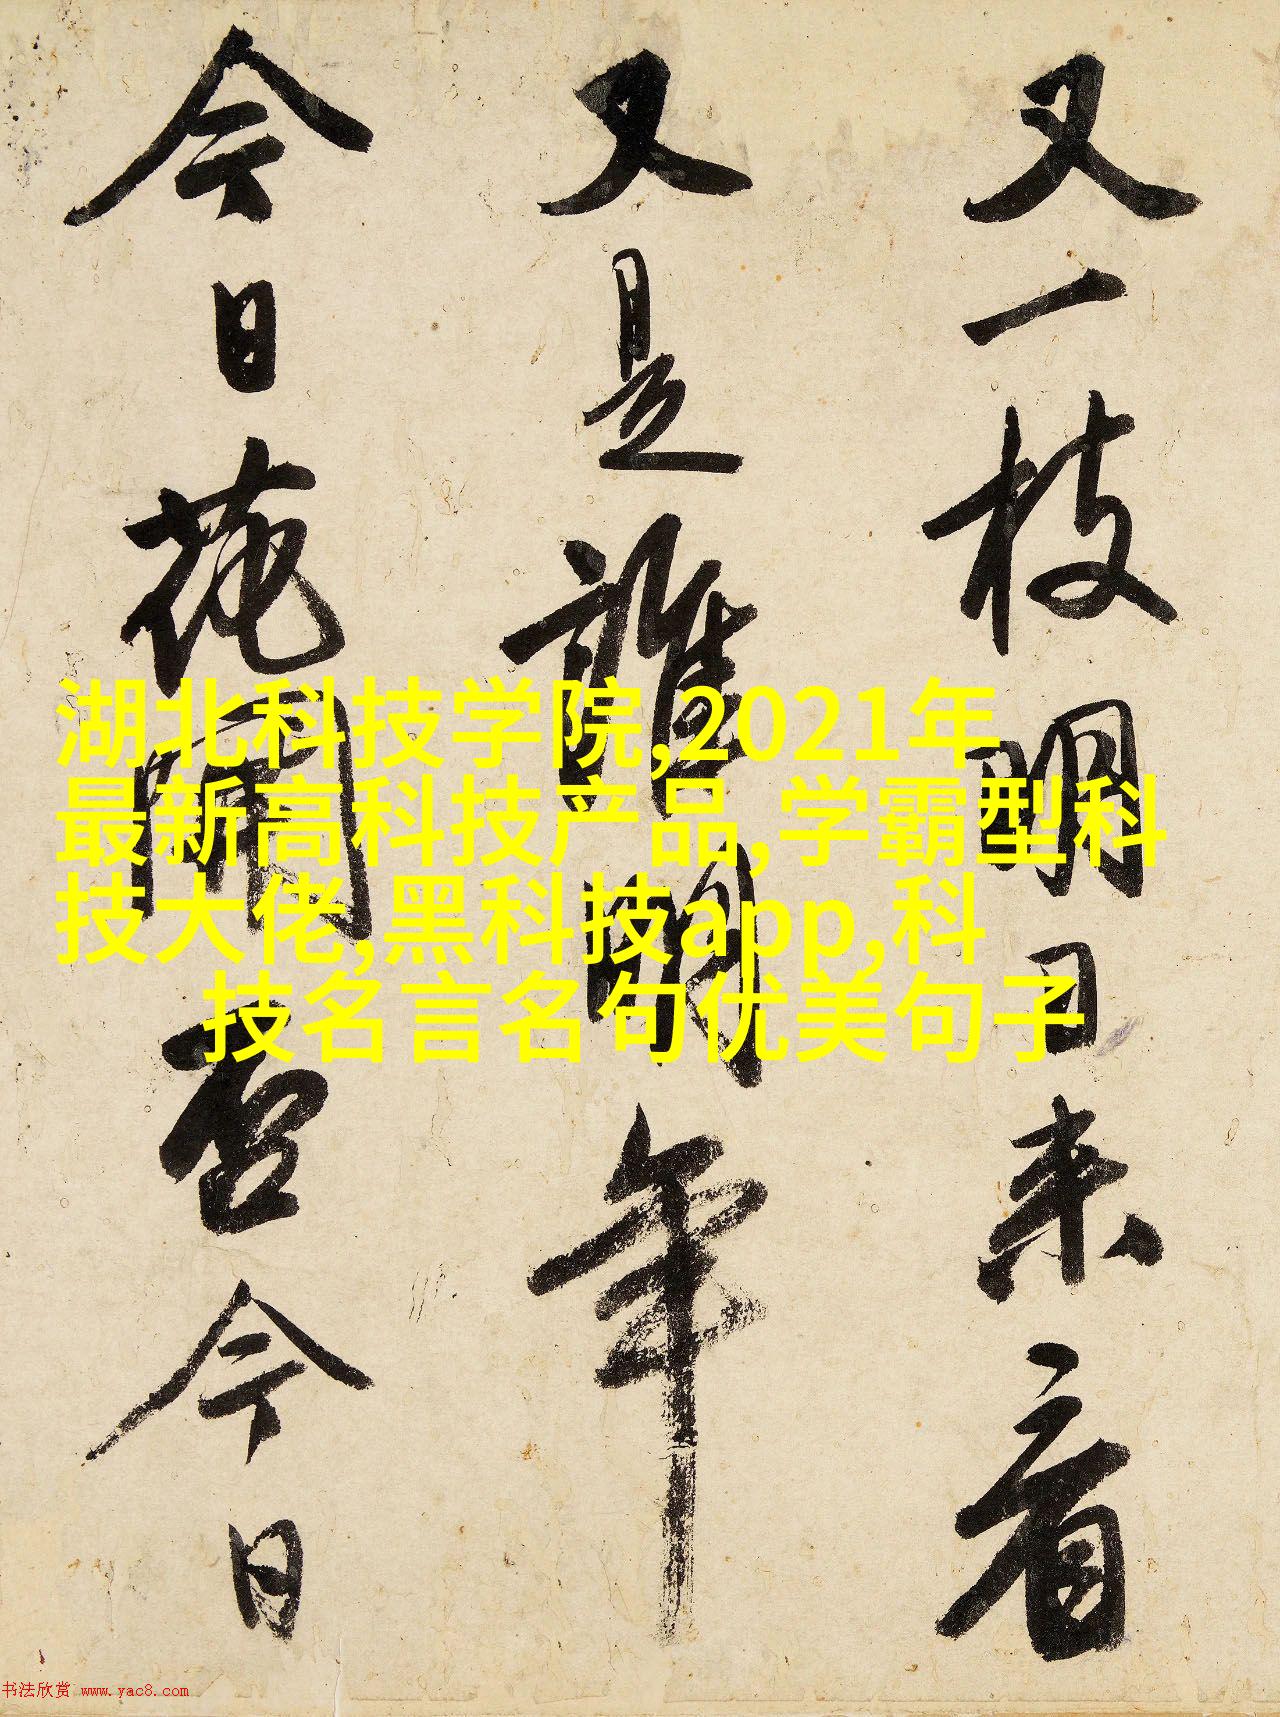 又一枝明日来看
又是誰明年
今日花開否今日
湖北科技学院,2021年
最新高科技产品,学霸型科
技大佬,黑科技app,科
技名言名句优美句子
书法欣赏 www.yac8.com